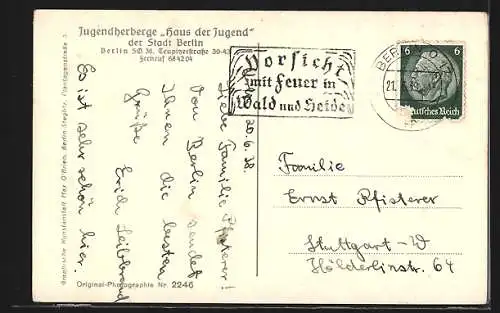 Jugendherberge „Haus der Jugend"
der Stadt Berlin
Berlin SO 36, Teupitzerstraße 39-42
Fernruf 68 42 04
Vorsicht
mit Feuer in
Wald und Heide
6 6
Deutsches Reich
BER
21.
20.6.38.
Liebe Familie Pfisterer!
Von Berlin sendet
Ihnen die besten
Grüße Erich Leibbrand
Es ist sehr schön hier.
Familie
Ernst Pfisterer
Stuttgart-W
Hölderlinstr. 64
Graphische Kunstanstalt Max O'Brien, Berlin-Steglitz, Plantagenstraße 3
Original-Photographie Nr. 2246